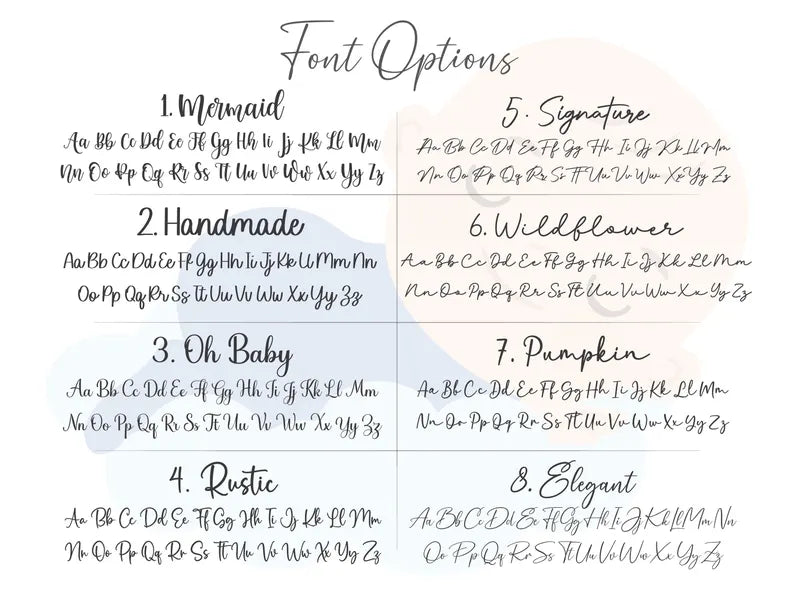 Font Options
1. Mermaid
Aa Bb Cc Dd Ee Ff Gg Hh Ii Jj Kk Ll Mm
Nn Oo Pp Qq Rr Ss Tt Uu Vv Ww Xx Yy Zz
2. Handmade
Aa Bb Cc Dd Ee Ff Gg Hh Ii Jj Kk Ll Mm Nn
Oo Pp Qq Rr Ss Tt Uu Vv Ww Xx Yy Zz
3. Oh Baby
Aa Bb Cc Dd Ee Ff Gg Hh Ii Jj Kk Ll Mm
Nn Oo Pp Qq Rr Ss Tt Uu Vv Ww Xx Yy Zz
4. Rustic
Aa Bb Cc Dd Ee Ff Gg Hh Ii Jj Kk Ll Mm
Nn Oo Pp Qq Rr Ss Tt Uu Vv Ww Xx Yy Zz
5. Signature
Aa Bb Cc Dd Ee Ff Gg Hh Ii Jj Kk Ll Mm
Nn Oo Pp Qq Rr Ss Tt Uu Vv Ww Xx Yy Zz
6. Wildflower
Aa Bb Cc Dd Ee Ff Gg Hh Ii Jj Kk Ll Mm
Nn Oo Pp Qq Rr Ss Tt Uu Vv Ww Xx Yy Zz
7. Pumpkin
Aa Bb Cc Dd Ee Ff Gg Hh Ii Jj Kk Ll Mm
Nn Oo Pp Qq Rr Ss Tt Uu Vv Ww Xx Yy Zz
8. Elegant
Aa Bb Cc Dd Ee Ff Gg Hh Ii Jj Kk Ll Mm Nn
Oo Pp Qq Rr Ss Tt Uu Vv Ww Xx Yy Zz